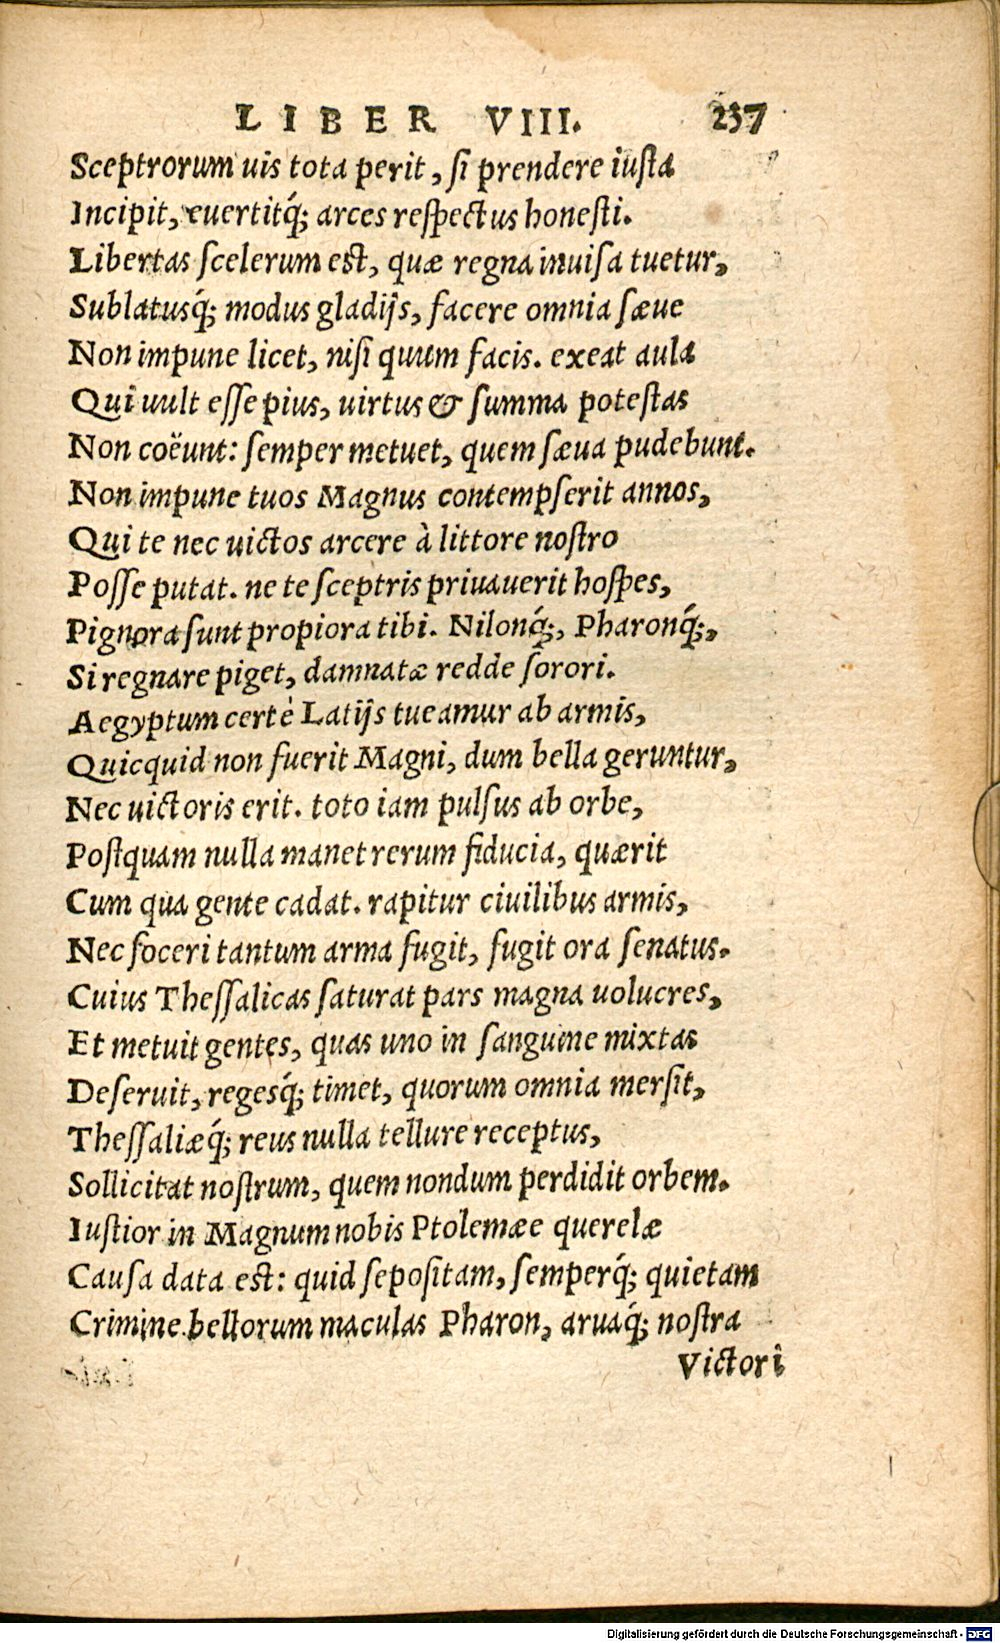 LIBER VIII. 237
Sceptrorum uis tota perit, ſi prendere iuſta
Incipit, euertitq́; arces reſpectus honeſti.
Libertas ſcelerum eſt, quæ regna inuiſa tuetur,
Sublatusq́; modus gladijs, facere omnia ſæue
Non impune licet, niſi quum facis. exeat aula
Qui uult eſſe pius, uirtus & ſumma poteſtas
Non coëunt: ſemper metuet, quem ſæua pudebunt.
Non impune tuos Magnus contempſerit annos,
Qui te nec uictos arcere à littore noſtro
Poſſe putat. ne te ſceptris priuauerit hoſpes,
Pignora ſunt propiora tibi. Nilonq́;, Pharonq́;,
Si regnare piget, damnatæ redde ſorori.
Aegyptum certè Latijs tueamur ab armis,
Quicquid non fuerit Magni, dum bella geruntur,
Nec uictoris erit. toto iam pulſus ab orbe,
Poſtquam nulla manet rerum fiducia, quærit
Cum qua gente cadat. rapitur ciuilibus armis,
Nec ſoceri tantum arma fugit, fugit ora ſenatus.
Cuius Theſſalicas ſaturat pars magna uolucres,
Et metuit gentes, quas uno in ſanguine mixtas
Deſeruit, regesq́; timet, quorum omnia merſit,
Theſſaliæq́; reus nulla tellure receptus,
Sollicitat noſtrum, quem nondum perdidit orbem.
Iuſtior in Magnum nobis Ptolemæe querelæ
Cauſa data eſt: quid ſepoſitam, ſemperq́; quietam
Crimine bellorum maculas Pharon, aruaq́; noſtra
Victori
Digitalisierung gefördert durch die Deutsche Forschungsgemeinschaft - DFG